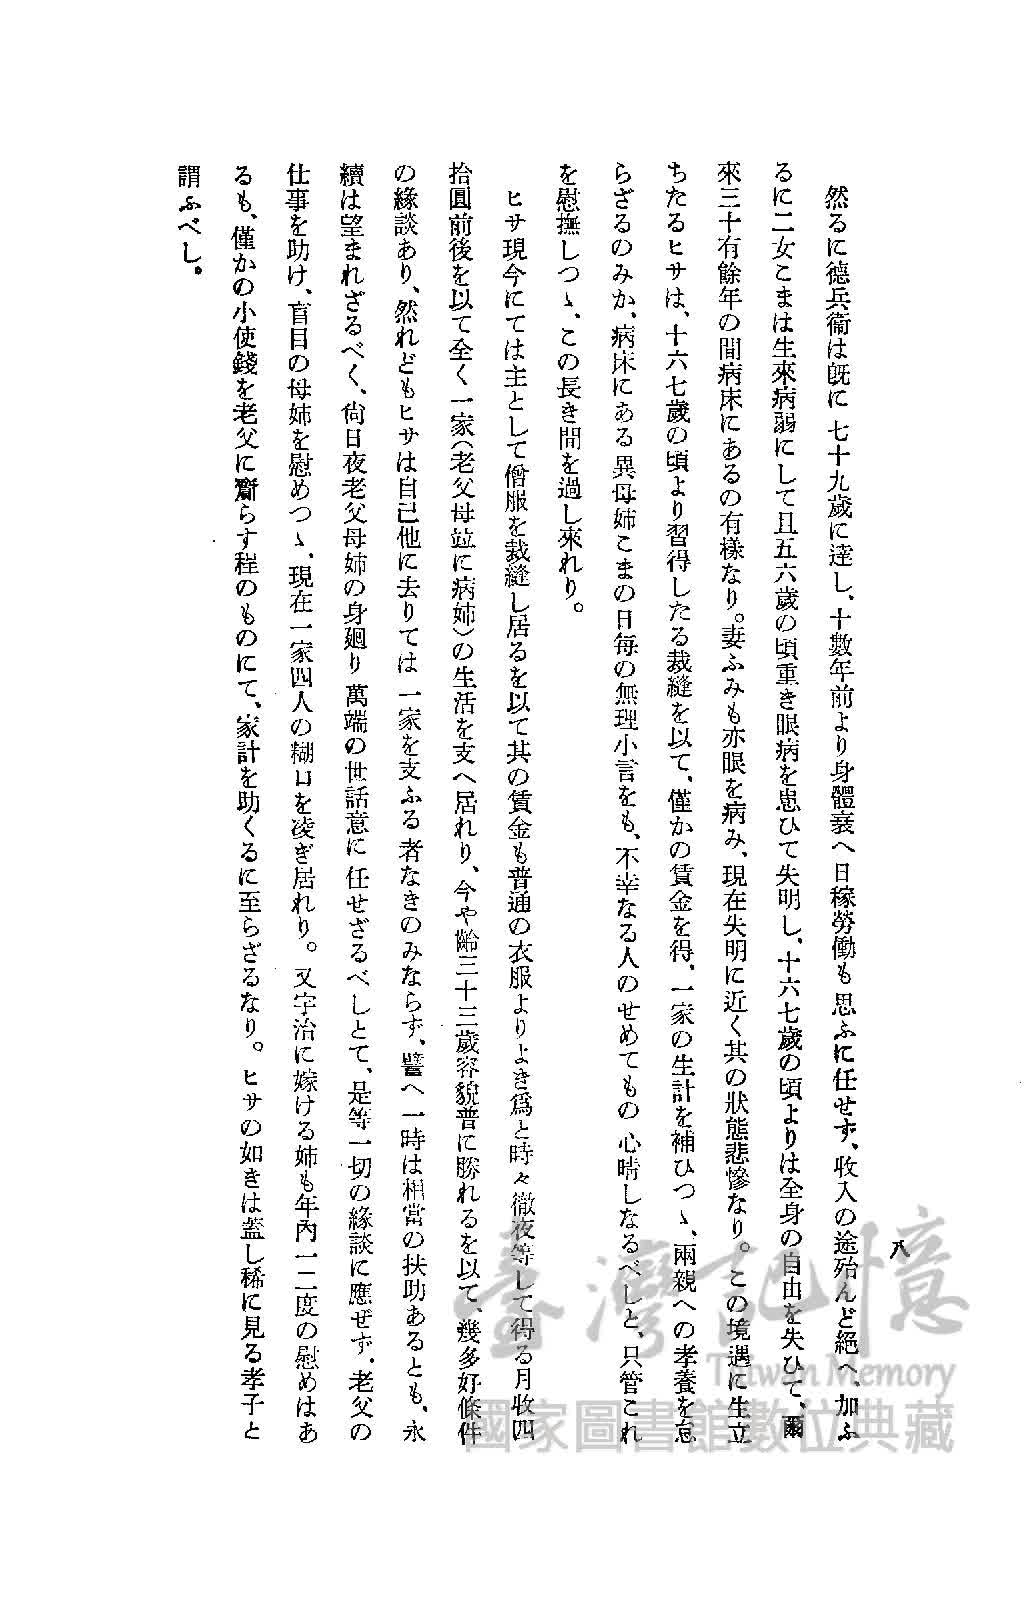 八
然るに德兵衞は旣に七十九歲に達し、十數年前より身體衰へ日稼勞働も思ふに任せず、收入の途殆んど絕へ、加ふ
るに二女こまは生來病弱にして且五六歲の頃重き眼病を患ひて失明し、十六七歲の頃よりは全身の自由を失ひて、爾
來三十有餘年の間病床にあるの有樣なり。妻ふみも亦眼を病み、現在失明に近く其の狀態悲慘なり。この境遇に生立
ちたるヒサは、十六七歲の頃より習得したる裁縫を以て、僅かの賃金を得、一家の生計を補ひつゝ、兩親への孝養を怠
らざるのみか、病床にある異母姉こまの日每の無理小言をも、不幸なる人のせめてもの心晴しなるべしと、只管これ
を慰撫しつゝ、この長き間を過し來れり。
ヒサ現今にては主として僧服を裁縫し居るを以て其の賃金も普通の衣服よりよき爲と時々徹夜等して得る月收四
拾圓前後を以て全く一家(老父母竝に病姉)の生活を支へ居れり、今や齡三十三歲容貌普に勝れるを以て、幾多好條件
の緣談あり、然れどもヒサは自己他に去りては一家を支ふる者なきのみならず、譬へ一時は相當の扶助あるとも、永
續は望まれざるべく、尙日夜老父母姉の身廻り萬端の世話意に任せざるべしとて、是等一切の緣談に應ぜず、老父の
仕事を助け、盲目の母姉を慰めつゝ、現在一家四人の糊口を凌ぎ居れり。又宇治に嫁ける姉も年內一二度の慰めはあ
るも、僅かの小使錢を老父に齎らす程のものにて、家計を助くるに至らざるなり。ヒサの如きは蓋し稀に見る孝子と
謂ふべし。
臺灣記憶
Taiwan Memory
國家圖書館數位典藏